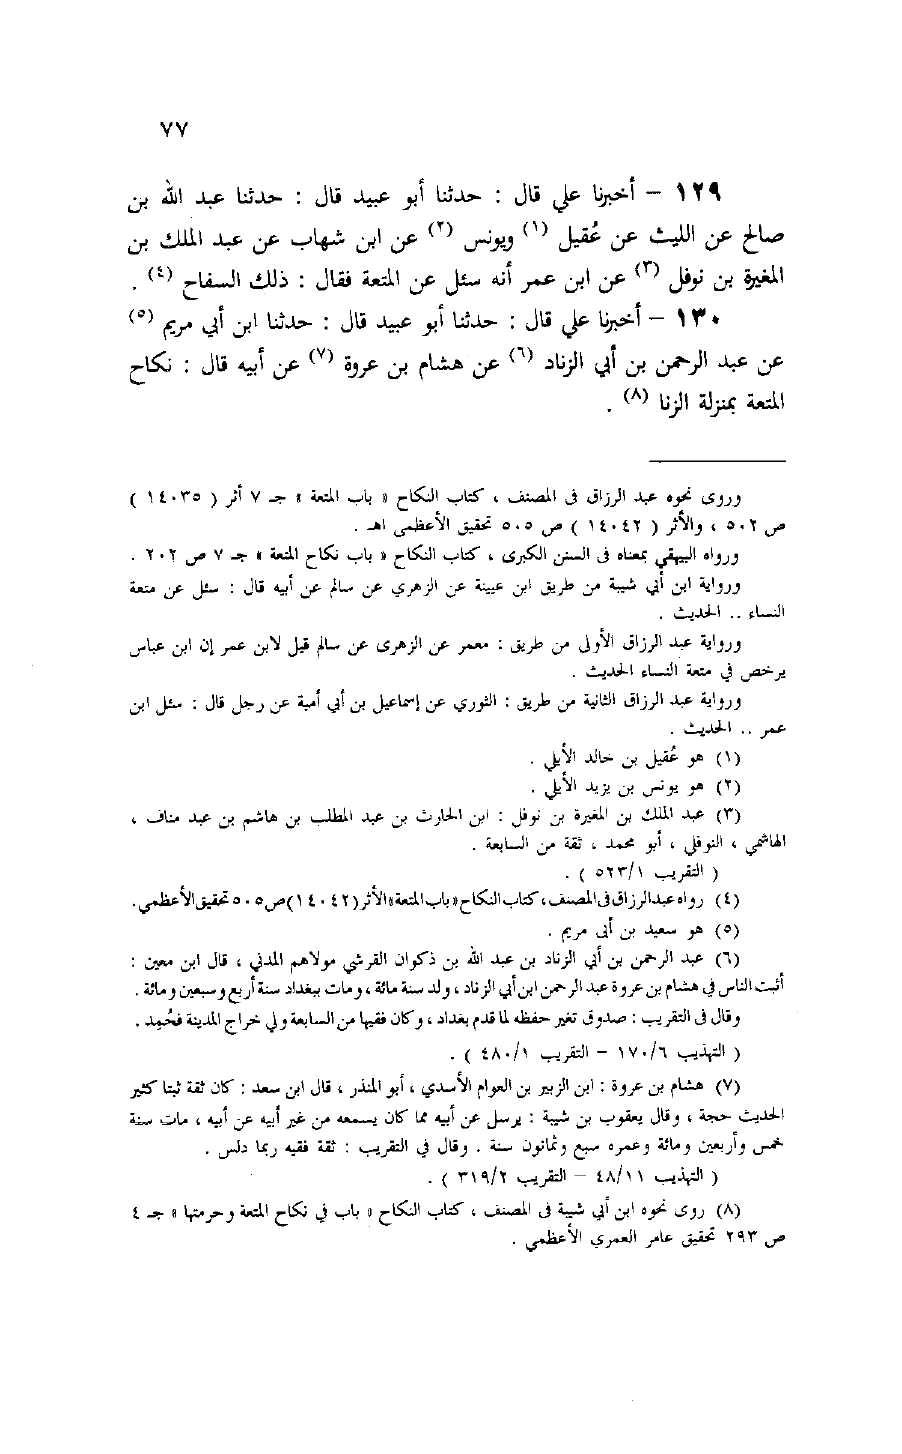 ٧٧
١٢٩ – أخبرنا علي قال : حدثنا أبو عبيد قال : حدثنا عبد الله بن
صالح عن الليث عن عُقيل (١) ويونس (٢) عن ابن شهاب عن عبد الملك بن
المغيرة بن نوفل (٣) عن ابن عمر أنه سئل عن المتعة فقال : ذلك السفاح (٤) .
١٣٠ – أخبرنا علي قال : حدثنا أبو عبيد قال : حدثنا ابن أبي مريم (٥)
عن عبد الرحمن بن أبي الزناد (٦) عن هشام بن عروة (٧) عن أبيه قال : نكاح
المتعة بمنزلة الزنا (٨) .
وروى نحوه عبد الرزاق فى المصنف ، كتاب النكاح « باب المتعة » جـ ٧ أثر ( ١٤٠٣٥ )
ص ٥٠٢ ، والأثر ( ١٤٠٤٢ ) ص ٥٠٥ تحقيق الأعظمى اهـ .
ورواه البيهقي بمعناه فى السنن الكبرى ، كتاب النكاح « باب نكاح المتعة » جـ ٧ ص ٢٠٢ .
ورواية ابن أبي شيبة من طريق ابن عيينة عن الزهري عن سالم عن أبيه قال : سئل عن متعة
النساء .. الحديث .
ورواية عبد الرزاق الأولى من طريق : معمر عن الزهرى عن سالم قيل لابن عمر إن ابن عباس
يرخص في متعة النساء الحديث .
ورواية عبد الرزاق الثانية من طريق : الثوري عن إسماعيل بن أبي أمية عن رجل قال : سئل ابن
عمر .. الحديث .
(١) هو عُقيل بن خالد الأيلي .
(٢) هو يونس بن يزيد الأيلي .
(٣) عبد الملك بن المغيرة بن نوفل : ابن الحارث بن عبد المطلب بن هاشم بن عبد مناف ،
الهاشمي ، النوفلي ، أبو محمد ، ثقة من السابعة .
( التقريب ٥٢٣/١ ) .
(٤) رواه عبد الرزاق فى المصنف ، كتاب النكاح « باب المتعة » الأثر (١٤٠٤٢) ص ٥٠٥ تحقيق الأعظمي .
(٥) هو سعيد بن أبى مريم .
(٦) عبد الرحمن بن أبي الزناد بن عبد الله بن ذكوان القرشي مولاهم المدني ، قال ابن معين :
أثبت الناس في هشام بن عروة عبد الرحمن ابن أبي الزناد ، ولد سنة مائة ، ومات ببغداد سنة أربع وسبعين ومائة .
وقال فى التقريب : صدوق تغير حفظه لما قدم بغداد ، وكان فقيها من السابعة ولي خراج المدينة فحُمِد .
( التهذيب ١٧٠/٦ – التقريب ٤٨٠/١ ) .
(٧) هشام بن عروة : ابن الزبير بن العوام الأسدي ، أبو المنذر ، قال ابن سعد : كان ثقة ثبتا كثير
الحديث حجة ، وقال يعقوب بن شيبة : يرسل عن أبيه مما كان يسمعه من غير أبيه عن أبيه ، مات سنة
خمس وأربعين ومائة وعمره سبع وثمانون سنة . وقال في التقريب : ثقة فقيه ربما دلس .
( التهذيب ٤٨/١١ – التقريب ٣١٩/٢ ) .
(٨) روى نحوه ابن أبي شيبة فى المصنف ، كتاب النكاح « باب في نكاح المتعة وحرمتها » جـ ٤
ص ٢٩٣ تحقيق عامر العمري الأعظمي .